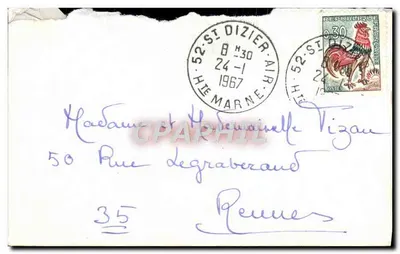 52 - ST DIZIER - AIR
8 H 30
24 - 1
1967
HTE MARNE
52 - ST DIZIER
0,30
CPAPHIL
Madame et Mademoiselle Tizau
50 Rue Legraverand
35 Rennes